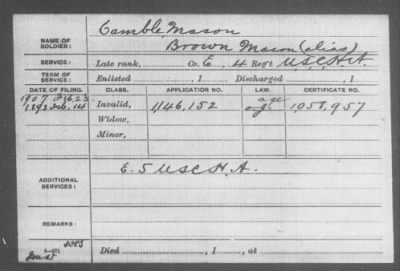 NAME OF SOLDIER: Gamble, Mason
Brown Mason (alias)
SERVICE: Late rank, Co. E, 4 Reg't U.S.C.H.A.
TERM OF SERVICE: Enlisted , 1 Discharged , 1
DATE OF FILING. CLASS. APPLICATION NO. LAW. CERTIFICATE NO.
1907 Feb. 23 age
1893 Feb. 14 Invalid, 1,146,152 o.g. 1,058,957
Widow,
Minor,
ADDITIONAL SERVICES: E. 5 U.S.C.H.A.
REMARKS:
Died , 1 , at